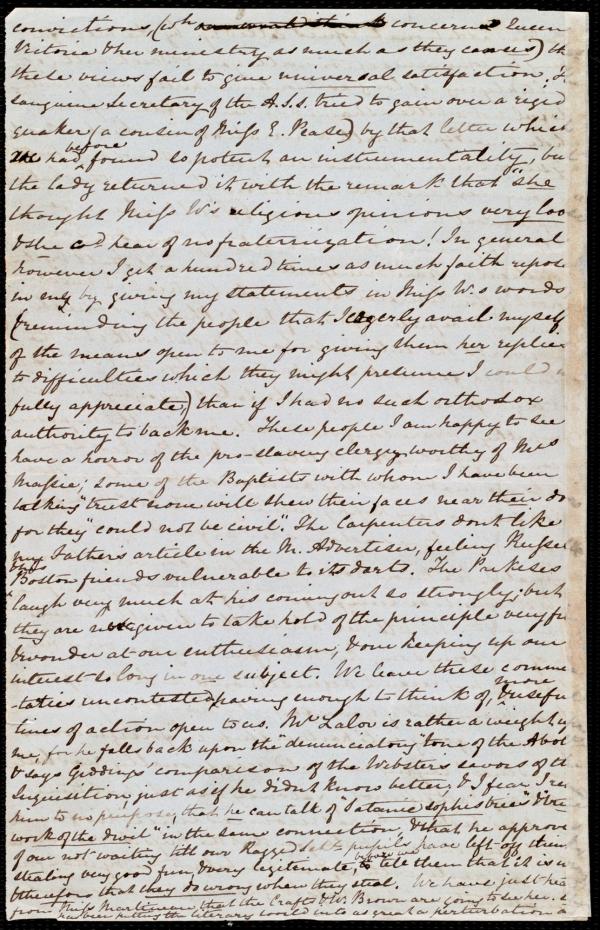 convictions, (wh concerns Queen
Victoria & her ministry as much as they causes) th
these views fail to give universal satisfaction.
sanguine Secretary of the A.S.s. tried to gain over a rigid
quaker (a cousin of Miss E. Pease) by that letter which
had before found so potent an instrumentality, but
the lady returned it with the remark that "she
thought Miss W's religious opinions very loo
& she cd hear of no fraternization! In general
however I get a hundred times as much faith repose
in my by giving my statements in Miss W.s words
(reminding the people that I eagerly avail myself
of the means open to me for giving them her replies
to difficulties which they might presume I could n
fully appreciate,) than if I had no such orthodox
authority to back me. These people I am happy to see
have a horror of the pro-slavery clergy worthy of Mrs
Massie; some of the Baptists with whom I have been
talking "trust none will shew their faces near their do
for they" could not be civil". The Carpenters dont like
my Father's article in the M. Advertiser, feeling Russel
& his Boston friends vulnerable to its darts. The Parkeses
laugh very much at his coming out so strongly; but
they are not given to take hold of the principle very fu
& wonder at our enthusiasm, & our keeping up our
interest so long in one subject. We leave these comme
-taties uncontested having enough to think of, & more usefu
times of action open to us. Mr Lalor is rather a weight up
me, for he falls back upon the "denunciatory" tone of the Abol
& says Giddings' comparison of the Websters savors of th
Inquisition, just as if he didn't know better, & I fear I re
him to no purpose, that he can talk of "Satanic sophistries" & "the
work of the devil" in the same connection, & that he approve
of our not waiting till our Ragged Schl. pupils have left off thin
stealing very good fun, & very legitimate, before we tell them that it is w
& therefore that they do wrong when they steal. We have just hea
from Miss Martineau, that the Crafts & W. Brown are going to see her. S
has been putting the literary world into as great a perturbation a